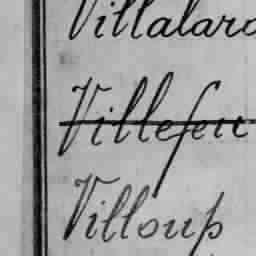 Villalard
Villefeu
Villoup